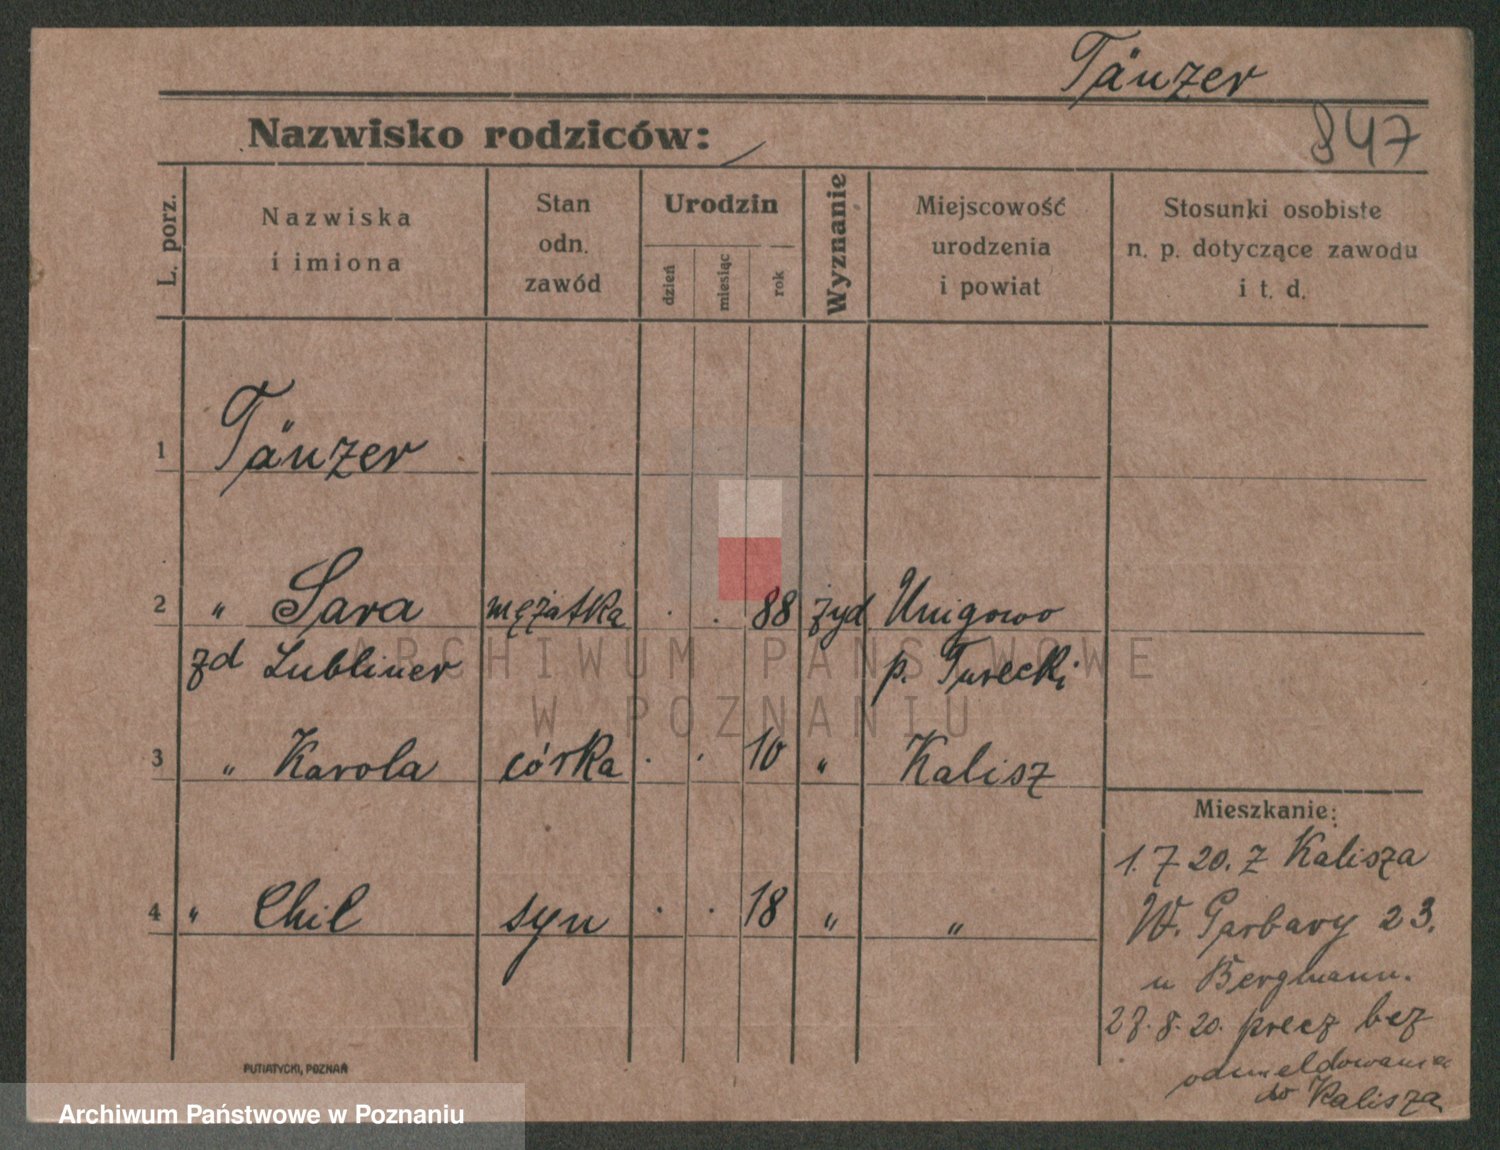 Tänzer
Nazwisko rodziców:
847
L. porz.
Nazwiska
i imiona
Stan
odn.
zawód
Urodzin
dzień
miesiąc
rok
Wyznanie
Miejscowość
urodzenia
i powiat
Stosunki osobiste
n. p. dotyczące zawodu
i t. d.
1 Tänzer
2 " Sara mężatka . . 88 żyd Unigowo
zd Lubliner p. Turecki
3 " Karola córka . . 10 " Kalisz
4 " Chil syn . . 18 " "
Mieszkanie:
1. 7 20. z Kalisza
W. Garbary 23.
u Bergmann.
28. 8. 20. precz bez
odmeldowania
do Kalisza
PUTIATYCKI, POZNAŃ
ARCHIWUM PAŃSTWOWE
W POZNANIU
Archiwum Państwowe w Poznaniu